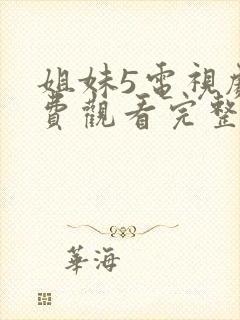 姐妹5電視
費觀看完整
華海